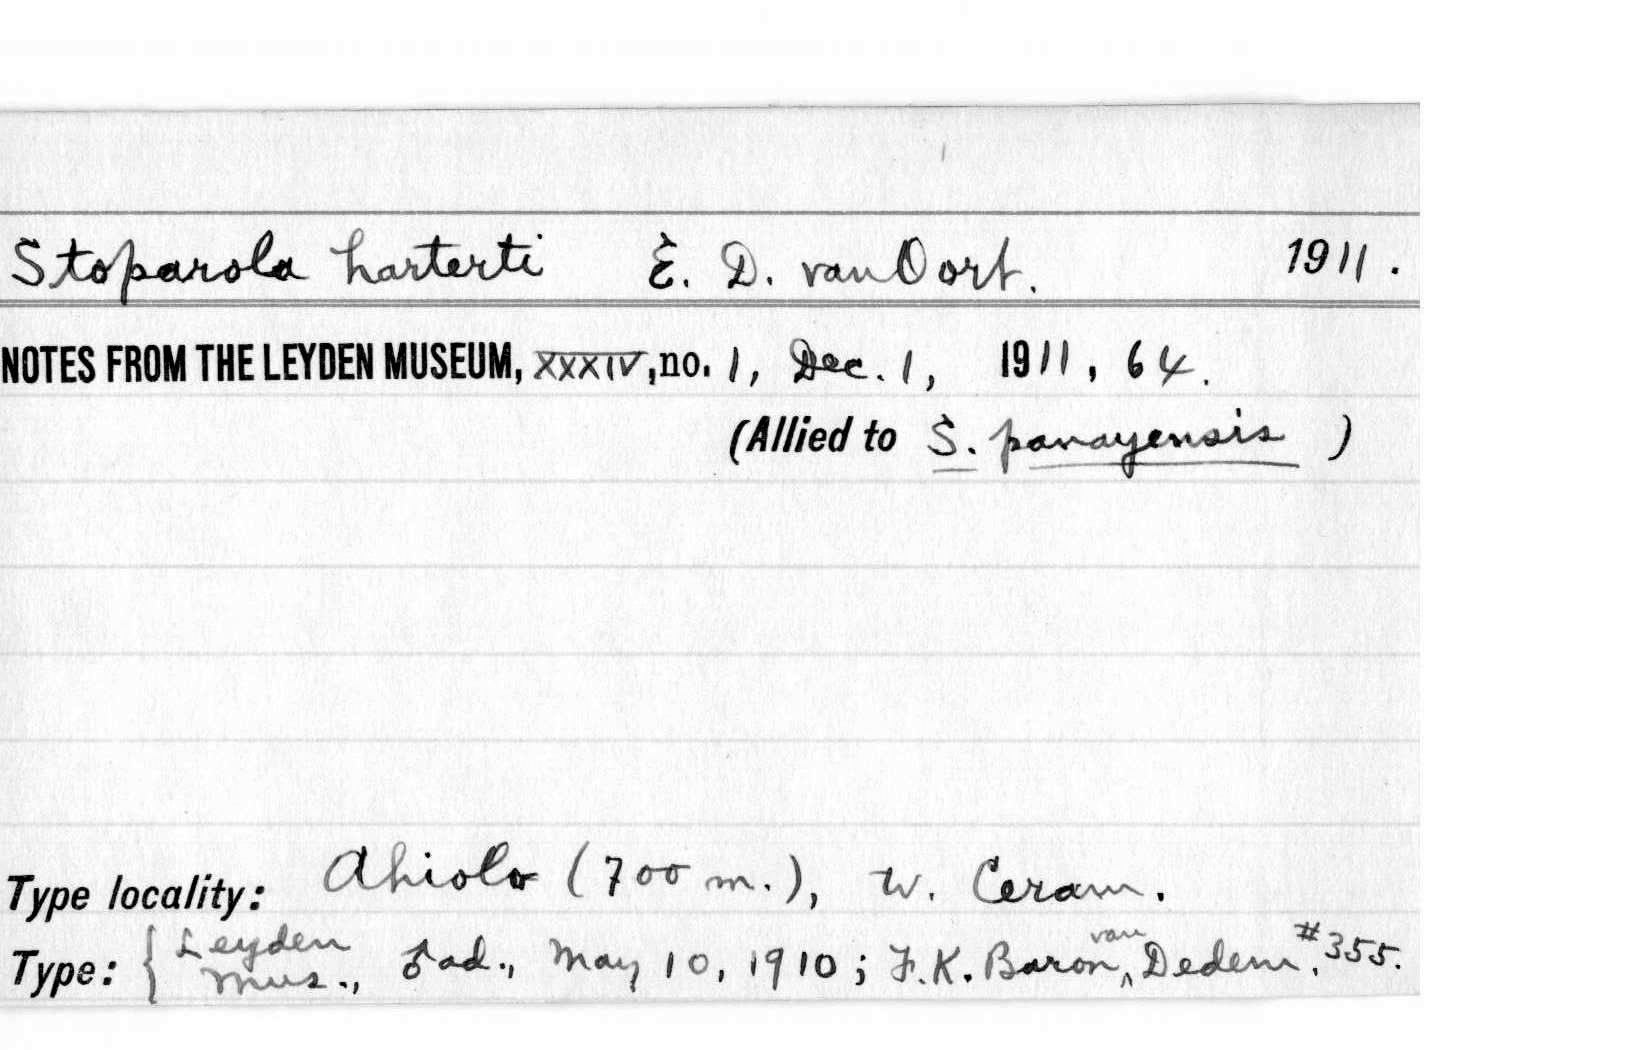 Stoparola harterti E. D. van Oort. 1911.
NOTES FROM THE LEYDEN MUSEUM, XXXIV, no. 1, Dec. 1, 1911, 64.
(Allied to S. panayensis )
Type locality: Ahiolo (700 m.), W. Ceram.
Type: { Leyden Mus., ♂ ad., May 10, 1910; F.K. Baron van Dedem, #355.